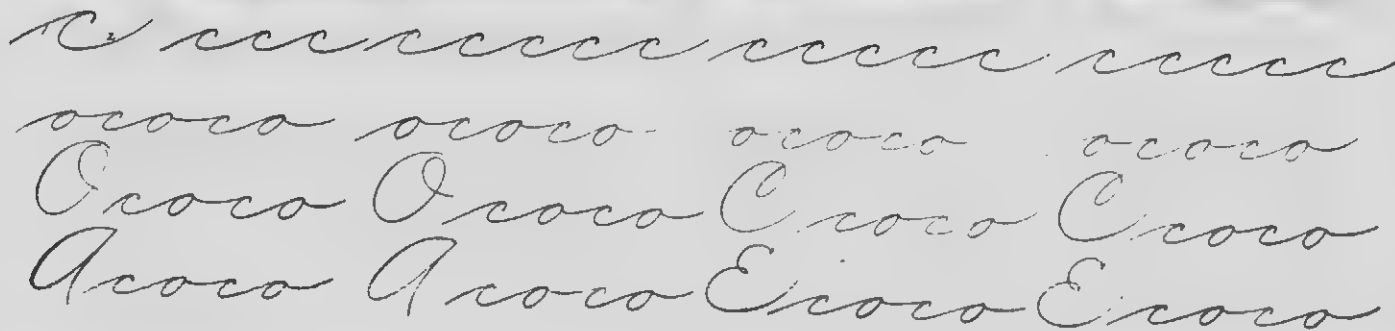 c ccc ccccc ccccc ccccc
ococo ococo ococo ococo
Ococo Ococo Ccoco Ccoco
Acoco Acoco Ecoco Ecoco